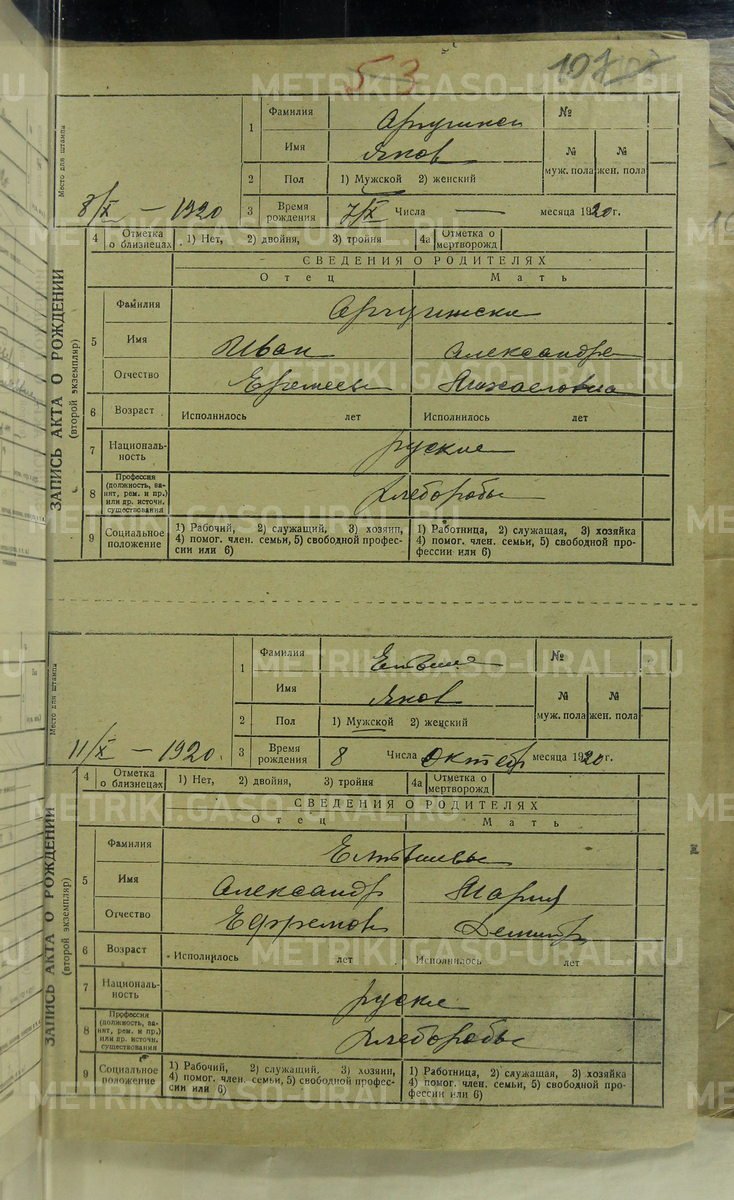 53 107
METRIKI.GASO-URAL.RU
ЗАПИСЬ АКТА О РОЖДЕНИИ
(второй экземпляр)
Место для штампа
8/X — 1920
1 Фамилия №
Имя Яков № №
муж. пола жен. пола
2 Пол 1) Мужской 2) женский
3 Время рождения 7/X Числа — месяца 1920г.
4 Отметка о близнецах 1) Нет, 2) двойня, 3) тройня 4а Отметка о мертворожд
СВЕДЕНИЯ О РОДИТЕЛЯХ
Отец Мать
5 Фамилия
Имя Иван Александра
Отчество Еремеев Михаеловна
6 Возраст Исполнилось лет Исполнилось лет
7 Националь-
ность руские
8 Профессия
(должность, за-
нят, рем. и пр.)
или др. источн.
существования
хлеборобы
9 Социальное
положение
1) Рабочий, 2) служащий, 3) хозяин,
4) помог. член. семьи, 5) свободной профес-
сии или 6)
1) Работница, 2) служащая, 3) хозяйка
4) помог. член. семьи, 5) свободной про-
фессии или 6)
METRIKI.GASO-URAL.RU
ЗАПИСЬ АКТА О РОЖДЕНИИ
(второй экземпляр)
Место для штампа
11/X — 1920.
1 Фамилия №
Имя Яков № №
муж. пола жен. пола
2 Пол 1) Мужской 2) женский
3 Время рождения 8 Числа Октябр месяца 1920г.
4 Отметка о близнецах 1) Нет, 2) двойня, 3) тройня 4а Отметка о мертворожд
СВЕДЕНИЯ О РОДИТЕЛЯХ
Отец Мать
5 Фамилия
Имя Александр Мария
Отчество Ефремов Демитр
6 Возраст Исполнилось лет Исполнилось лет
7 Националь-
ность руские
8 Профессия
(должность, за-
нят, рем. и пр.)
или др. источн.
существования
хлеборобы
9 Социальное
положение
1) Рабочий, 2) служащий, 3) хозяин,
4) помог. член. семьи, 5) свободной профес-
сии или 6)
1) Работница, 2) служащая, 3) хозяйка
4) помог. член. семьи, 5) свободной про-
фессии или 6)
METRIKI.GASO-URAL.RU